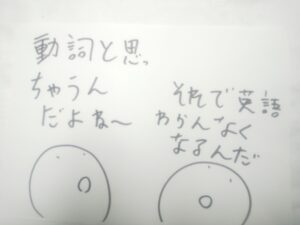 動詞と思っ
ちゃうん
だよね〜
それで英語
わかんなく
なるんだ